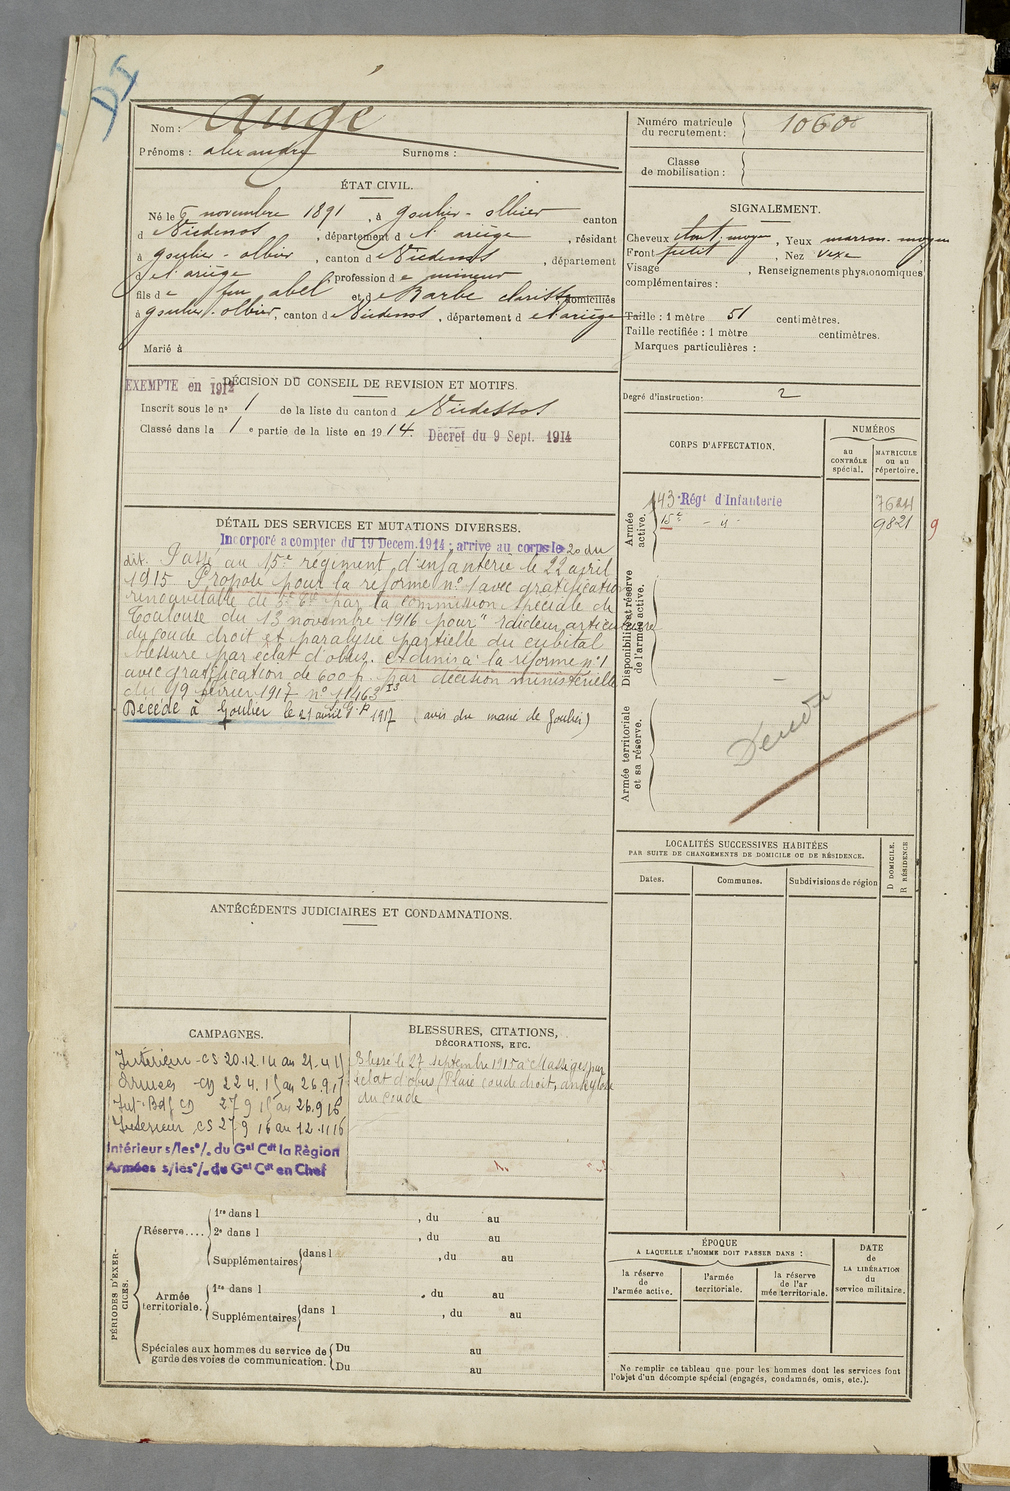 DI
Nom : Augé
Prénoms : alexandre Surnoms :
Numéro matricule du recrutement : 1060
Classe de mobilisation :
ÉTAT CIVIL.
Né le 6 novembre 1891, à Goulier-ollier canton
d Vicdessos, département d e l'ariège, résidant
à Goulier-ollier, canton d e Vicdessos, département
d e l'ariège profession d e mineur
fils d e feu abel et d e Barbe clarisse domiciliés
à Goulier-ollier, canton d e Vicdessos, département d e l'ariège
Marié à
SIGNALEMENT.
Cheveux chat. moyen, Yeux marron-moyen
Front petit, Nez vexe
Visage , Renseignements physionomiques
complémentaires :
Taille : 1 mètre 51 centimètres.
Taille rectifiée : 1 mètre centimètres.
Marques particulières :
Degré d'instruction : 2
EXEMPTÉ en 1912
DÉCISION DU CONSEIL DE REVISION ET MOTIFS.
Inscrit sous le n° 1 de la liste du canton d e Vicdessos
Classé dans la 1 e partie de la liste en 1914. Décret du 9 Sept. 1914
CORPS D'AFFECTATION.
NUMÉROS
au CONTRÔLE spécial.
MATRICULE ou au répertoire.
Armée active.
143e Régt d'Infanterie 7624
15e - d° - 9821 9
Disponibilité et réserve de l'armée active.
Armée territoriale et sa réserve.
Décédé
DÉTAIL DES SERVICES ET MUTATIONS DIVERSES.
Incorporé a compter du 19 Décem. 1914; arrive au corps le 20 du
dit. Passé au 15e régiment d'infanterie le 22 avril
1915 Proposé pour la réforme n° 1 avec gratification
renouvelable de 5e Cie par la commission spéciale de
Toulouse du 13 novembre 1916 pour "raideur articulaire
du coude droit et paralysie partielle du cubital
blessure par éclat d'obus. Admis à la réforme n° 1
avec gratification de 600 f. par décision ministérielle
du 19 février 1917 n° 11463 I3
G.P.
Décédé à Goulier le 21 avril 1917 (avis du maire de Goulier)
LOCALITÉS SUCCESSIVES HABITÉES
PAR SUITE DE CHANGEMENTS DE DOMICILE OU DE RÉSIDENCE.
Dates. Communes. Subdivisions de région
D DOMICILE.
R RÉSIDENCE
ANTÉCÉDENTS JUDICIAIRES ET CONDAMNATIONS.
CAMPAGNES.
Intérieur - CS 20.12.14 au 21.4.15
Armées - CD 22 4.15 au 26.9.15
Int. Bles CD 27 9 15 au 26.9 16
Intérieur CS 27.9 16 au 12.11 16
Intérieur s/les °/. du Gal Cdt la Région
Armées s/les °/. du Gal Cdt en Chef
BLESSURES, CITATIONS,
DÉCORATIONS, ETC.
Blessé le 27 septembre 1915 à Massiges par
éclat d'obus (Plaie coude droit, ankylose
du coude
PÉRIODES D'EXERCICES.
Réserve....
1re dans l , du au
2e dans l , du au
Supplémentaires dans l , du au
Armée territoriale.
1re dans l , du au
Supplémentaires dans l , du au
Spéciales aux hommes du service de garde des voies de communication.
Du au
Du au
ÉPOQUE
A LAQUELLE L'HOMME DOIT PASSER DANS :
la réserve de l'armée active.
l'armée territoriale.
la réserve de l'armée territoriale.
DATE de LA LIBÉRATION du service militaire.
Ne remplir ce tableau que pour les hommes dont les services font
l'objet d'un décompte spécial (engagés, condamnés, omis, etc.).